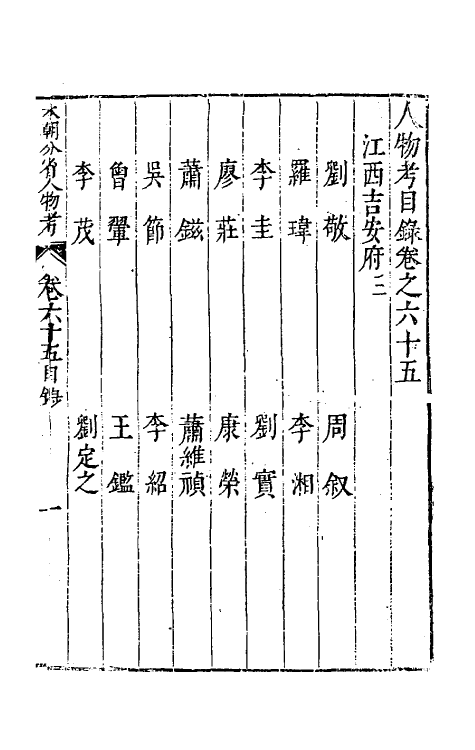 人物考目錄卷之六十五
江西吉安府三
劉敬 周敘
羅瑋 李湘
李圭 劉實
廖莊 康榮
蕭鎡 蕭維禎
吳節 李紹
曾翬 王鑑
李茂 劉定之
本朝分省人物考 卷六十五目錄 一